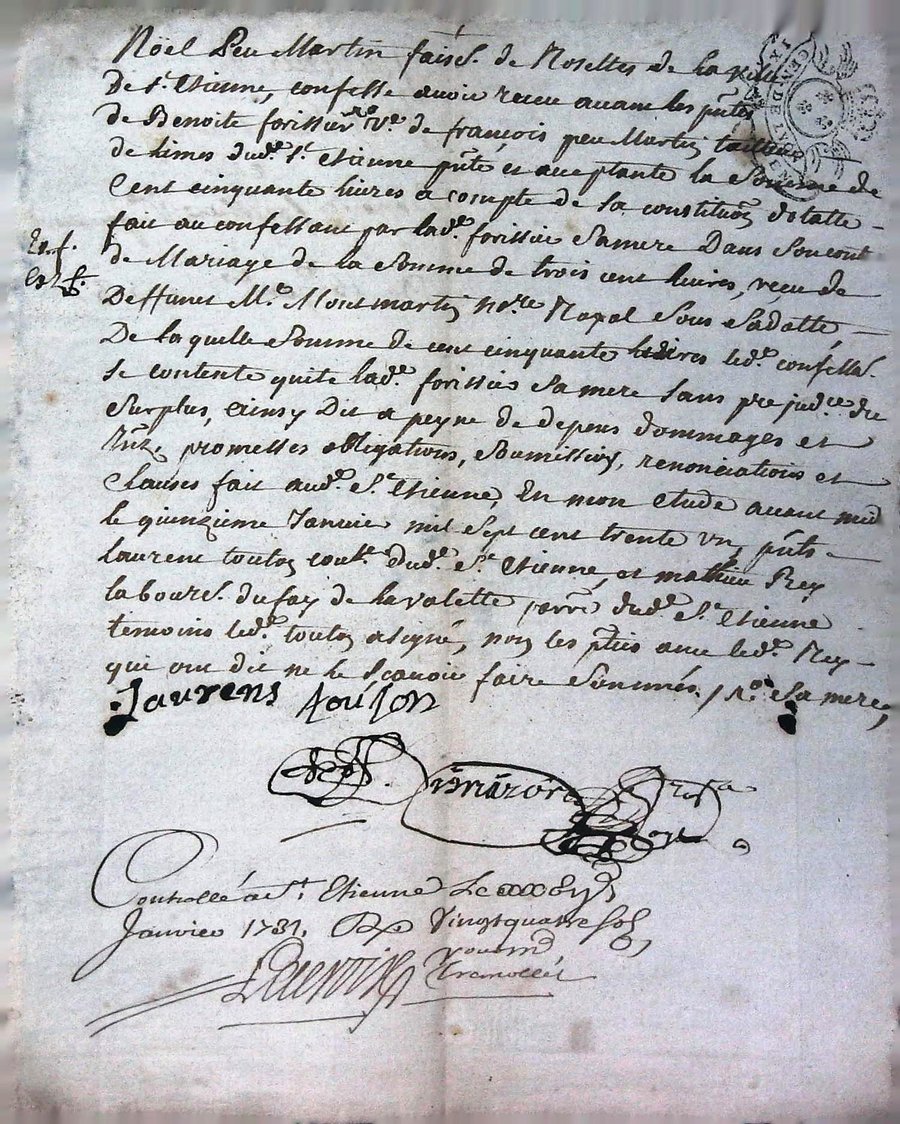 Nöel Peu Martin fais.r de Rosettes de la ville
De s.t Etienne, confesse avoir receu avant les p̃ntes
de Benoite forissier v.e de françois peu Martin tailleur
de Limes dud.t s.t Etienne p̃nte et acceptante la Somme de
Cent cinquante livres a compte de la constitua͠on dotalle
fait au confessant par lad.e forissier Sa mere Dans Son cont
de Mariage de la Somme de trois cent livres, reçu de
Deffunct M.e Montmartin no.re Royal Sous Sa datte
De laquelle Somme de cent cinquante livres led.t confess.t
se contente quite lad.e forissier Sa mere sans prejud.ce du
Surplus, ainsy Dit a peyne de depens dommages et
promesses obligations, Soumissions, renonciations et
Clauses fait aud.t S.t Etienne, En mon etude avant midi
le quinzieme Janvier mil sept cent trente un, p̃nts
laurent toulon dud.t S.t Etienne, et mathieu Rey
laboure.r du fay de la valette parr̃e dud.t S.t Etienne
temoins led.t toulon a signé, non les p̃ties avec led.t Rey
qui ont dit ne le Sçavoir faire Sommés. / Sa mere,
Laurens toulon
Controllé a S.t Etienne Le
Janvier 1731, R Vingt quatre sols